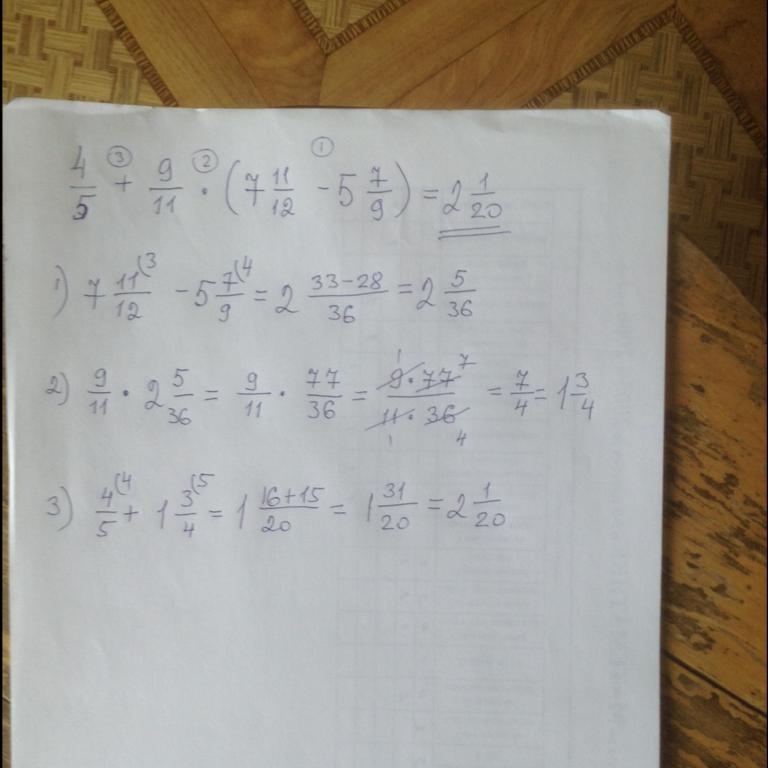 4/5 + ③ 9/11 ② · (7 11/12 ① - 5 7/9) = 2 1/20
1) 7 11/12 (3 - 5 7/9 (4 = 2 33-28/36 = 2 5/36
2) 9/11 · 2 5/36 = 9/11 · 77/36 = 9 1 · 77 7/11 1 · 36 4 = 7/4 = 1 3/4
3) 4/5 (4 + 1 3/4 (5 = 1 16+15/20 = 1 31/20 = 2 1/20